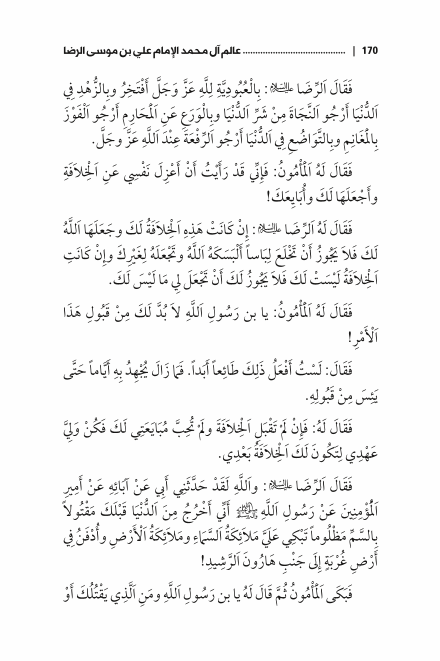 170 | ......................................... عالم آل محمد الإمام علي بن موسى الرضا
فَقَالَ اَلرِّضَا عليه السلام: بِالْعُبُودِيَّةِ لِلَّهِ عَزَّ وَجَلَّ أَفْتَخِرُ وبِالزُّهْدِ فِي
اَلدُّنْيَا أَرْجُو اَلنَّجَاةَ مِنْ شَرِّ اَلدُّنْيَا وبِالْوَرَعِ عَنِ اَلْمَحَارِمِ أَرْجُو اَلْفَوْزَ
بِالْمَغَانِمِ وبِالتَّوَاضُعِ فِي اَلدُّنْيَا أَرْجُو اَلرِّفْعَةَ عِنْدَ اَللَّهِ عَزَّ وجَلَّ.
فَقَالَ لَهُ اَلْمَأْمُونُ: فَإِنِّي قَدْ رَأَيْتُ أَنْ أَعْزِلَ نَفْسِي عَنِ اَلْخِلاَفَةِ
وأَجْعَلَهَا لَكَ وأُبَايِعَكَ!
فَقَالَ لَهُ اَلرِّضَا عليه السلام: إِنْ كَانَتْ هَذِهِ اَلْخِلاَفَةُ لَكَ وجَعَلَهَا اَللَّهُ
لَكَ فَلاَ يَجُوزُ أَنْ تَخْلَعَ لِبَاساً أَلْبَسَكَهُ اَللَّهُ وتَجْعَلَهُ لِغَيْرِكَ وإِنْ كَانَتِ
اَلْخِلاَفَةُ لَيْسَتْ لَكَ فَلاَ يَجُوزُ لَكَ أَنْ تَجْعَلَ لِي مَا لَيْسَ لَكَ.
فَقَالَ لَهُ اَلْمَأْمُونُ: يا بن رَسُولِ اَللَّهِ لاَ بُدَّ لَكَ مِنْ قَبُولِ هَذَا
اَلْأَمْرِ!
فَقَالَ: لَسْتُ أَفْعَلُ ذَلِكَ طَائِعاً أَبَداً. فَمَا زَالَ يُجْهِدُ بِهِ أَيَّاماً حَتَّى
يَئِسَ مِنْ قَبُولِهِ.
فَقَالَ لَهُ: فَإِنْ لَمْ تَقْبَلِ اَلْخِلاَفَةَ ولَمْ تُحِبَّ مُبَايَعَتِي لَكَ فَكُنْ وَلِيَّ
عَهْدِي لِتَكُونَ لَكَ اَلْخِلاَفَةُ بَعْدِي.
فَقَالَ اَلرِّضَا عليه السلام: واَللَّهِ لَقَدْ حَدَّثَنِي أَبِي عَنْ آبَائِهِ عَنْ أَمِيرِ
اَلْمُؤْمِنِينَ عَنْ رَسُولِ اَللَّهِ ﷺ أَنِّي أَخْرُجُ مِنَ اَلدُّنْيَا قَبْلَكَ مَقْتُولاً
بِالسَّمِّ مَظْلُوماً تَبْكِي عَلَيَّ مَلاَئِكَةُ اَلسَّمَاءِ ومَلاَئِكَةُ اَلْأَرْضِ وأُدْفَنُ فِي
أَرْضِ غُرْبَةٍ إِلَى جَنْبِ هَارُونَ اَلرَّشِيدِ!
فَبَكَى اَلْمَأْمُونُ ثُمَّ قَالَ لَهُ يا بن رَسُولِ اَللَّهِ ومَنِ اَلَّذِي يَقْتُلُكَ أَوْ